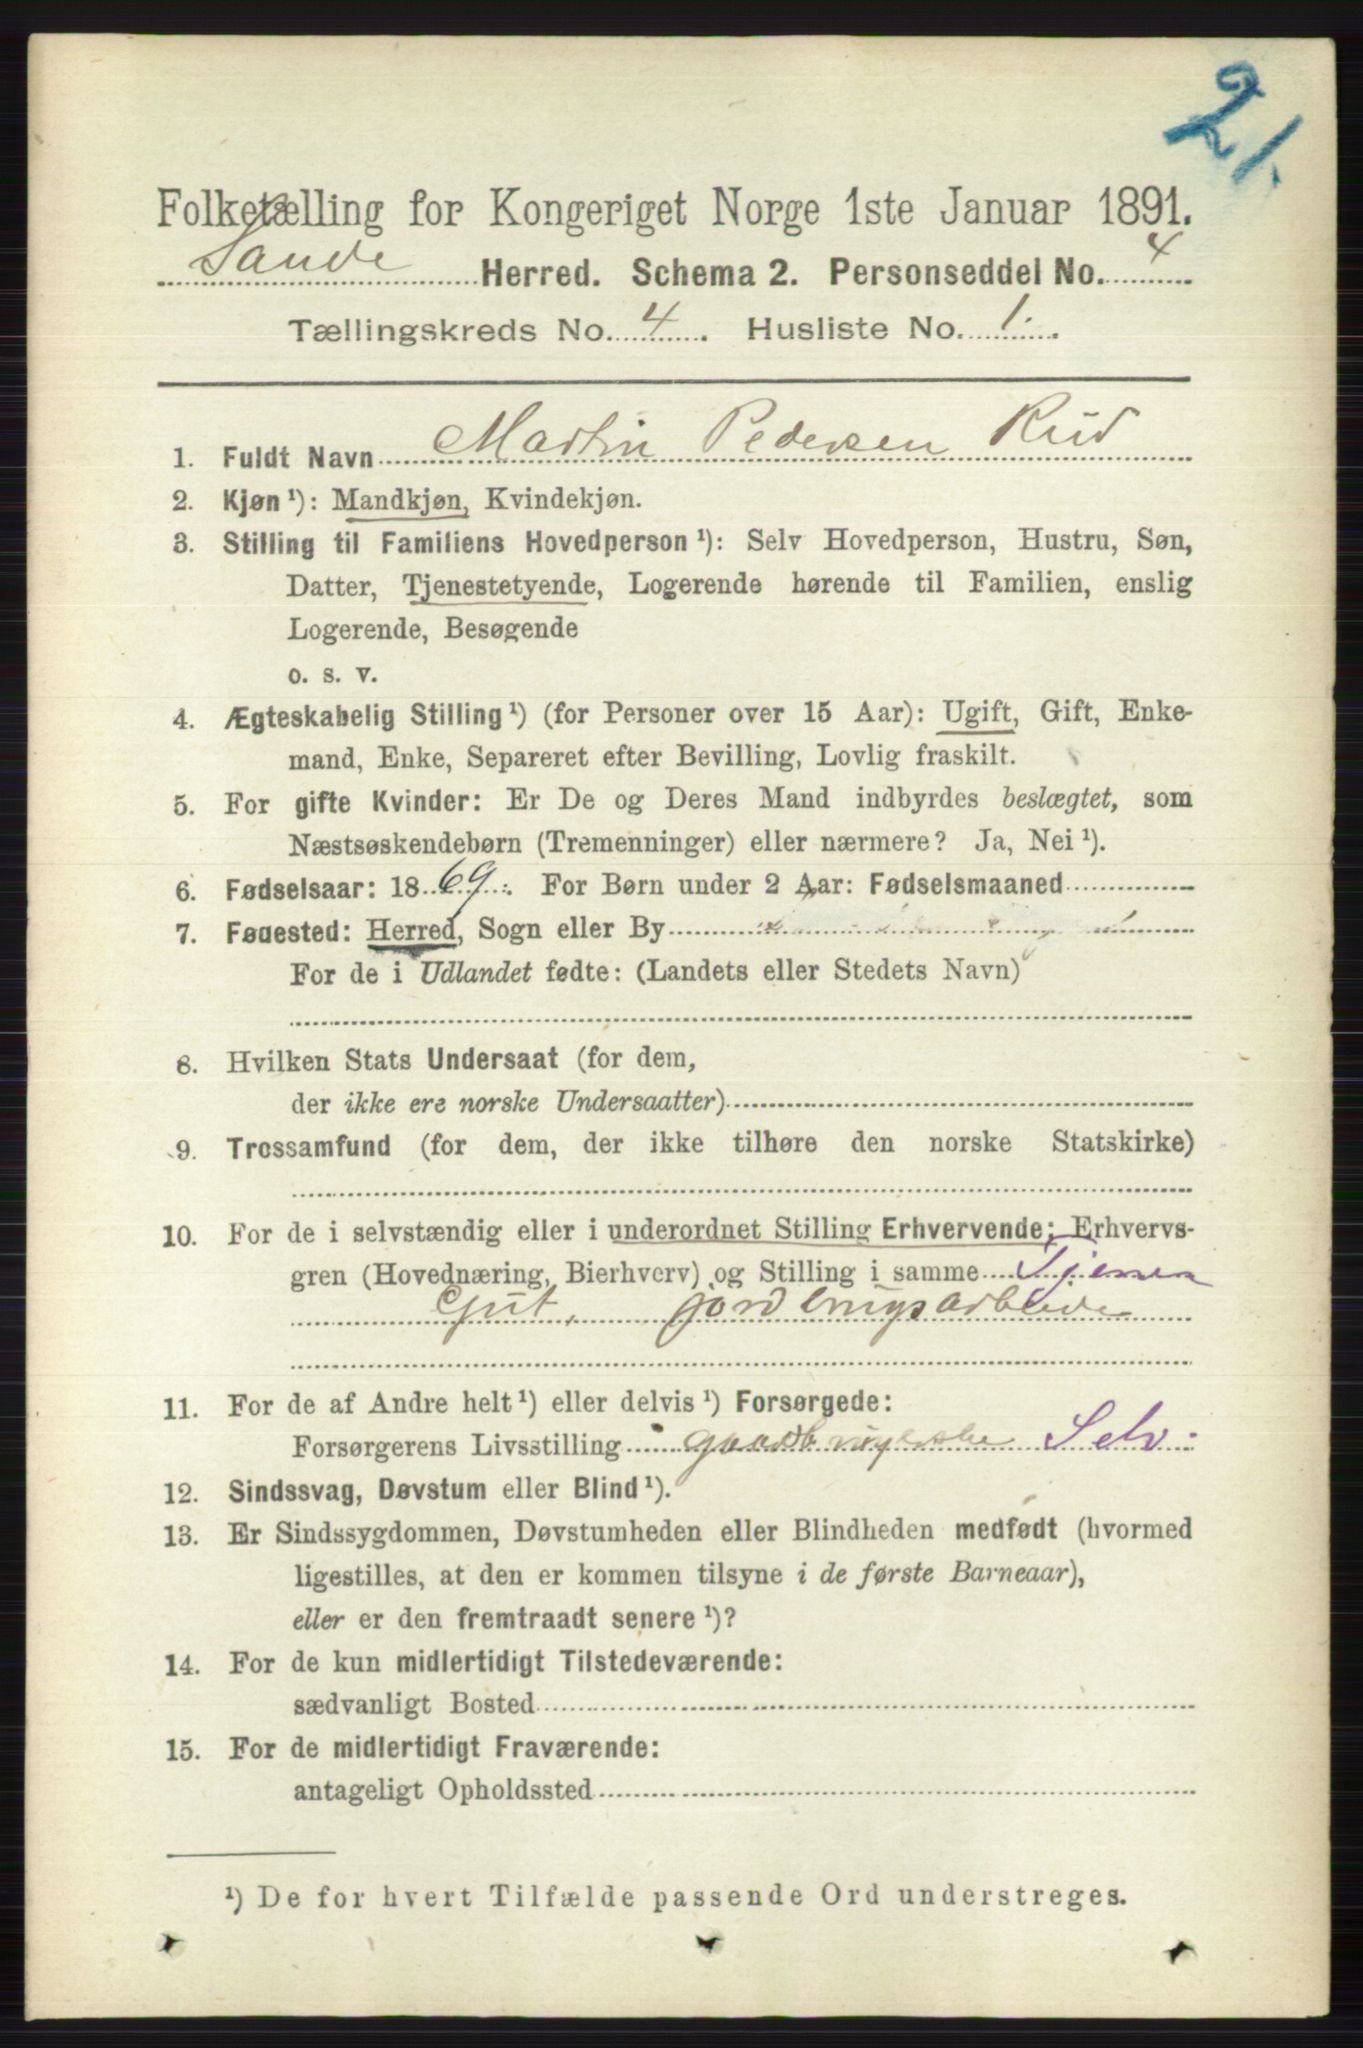 21.
Folketælling for Kongeriget Norge 1ste Januar 1891.
Sande Herred. Schema 2. Personseddel No. 4
Tællingskreds No. 4. Husliste No. 1.
1. Fuldt Navn Martin Pedersen Rud
2. Kjøn ¹): Mandkjøn, Kvindekjøn.
3. Stilling til Familiens Hovedperson ¹): Selv Hovedperson, Hustru, Søn,
Datter, Tjenestetyende, Logerende hørende til Familien, enslig
Logerende, Besøgende
o. s. v.
4. Ægteskabelig Stilling ¹) (for Personer over 15 Aar): Ugift, Gift, Enke-
mand, Enke, Separeret efter Bevilling, Lovlig fraskilt.
5. For gifte Kvinder: Er De og Deres Mand indbyrdes beslægtet, som
Næstsøskendebørn (Tremenninger) eller nærmere? Ja, Nei ¹).
6. Fødselsaar: 1869. For Børn under 2 Aar: Fødselsmaaned
7. Fødested: Herred, Sogn eller By
For de i Udlandet fødte: (Landets eller Stedets Navn)
8. Hvilken Stats Undersaat (for dem,
der ikke ere norske Undersaatter)
9. Trossamfund (for dem, der ikke tilhøre den norske Statskirke)
10. For de i selvstændig eller i underordnet Stilling Erhvervende: Erhvervs-
gren (Hovednæring, Bierhverv) og Stilling i samme Tjenes
Gut, jordbrugsarbeide
11. For de af Andre helt ¹) eller delvis ¹) Forsørgede:
Forsørgerens Livsstilling Selv.
12. Sindssvag, Døvstum eller Blind ¹).
13. Er Sindssygdommen, Døvstumheden eller Blindheden medfødt (hvormed
ligestilles, at den er kommen tilsyne i de første Barneaar),
eller er den fremtraadt senere ¹)?
14. For de kun midlertidigt Tilstedeværende:
sædvanligt Bosted
15. For de midlertidigt Fraværende:
antageligt Opholdssted
¹) De for hvert Tilfælde passende Ord understreges.